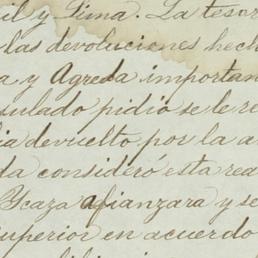 il y Lima. La tesor
las devoluciones hech
a y Agreda importan
sulado pidió se le re
ia devuelto por la a
da consideró esta rea
Ycaza afianzara y se
uperior en acuerdo